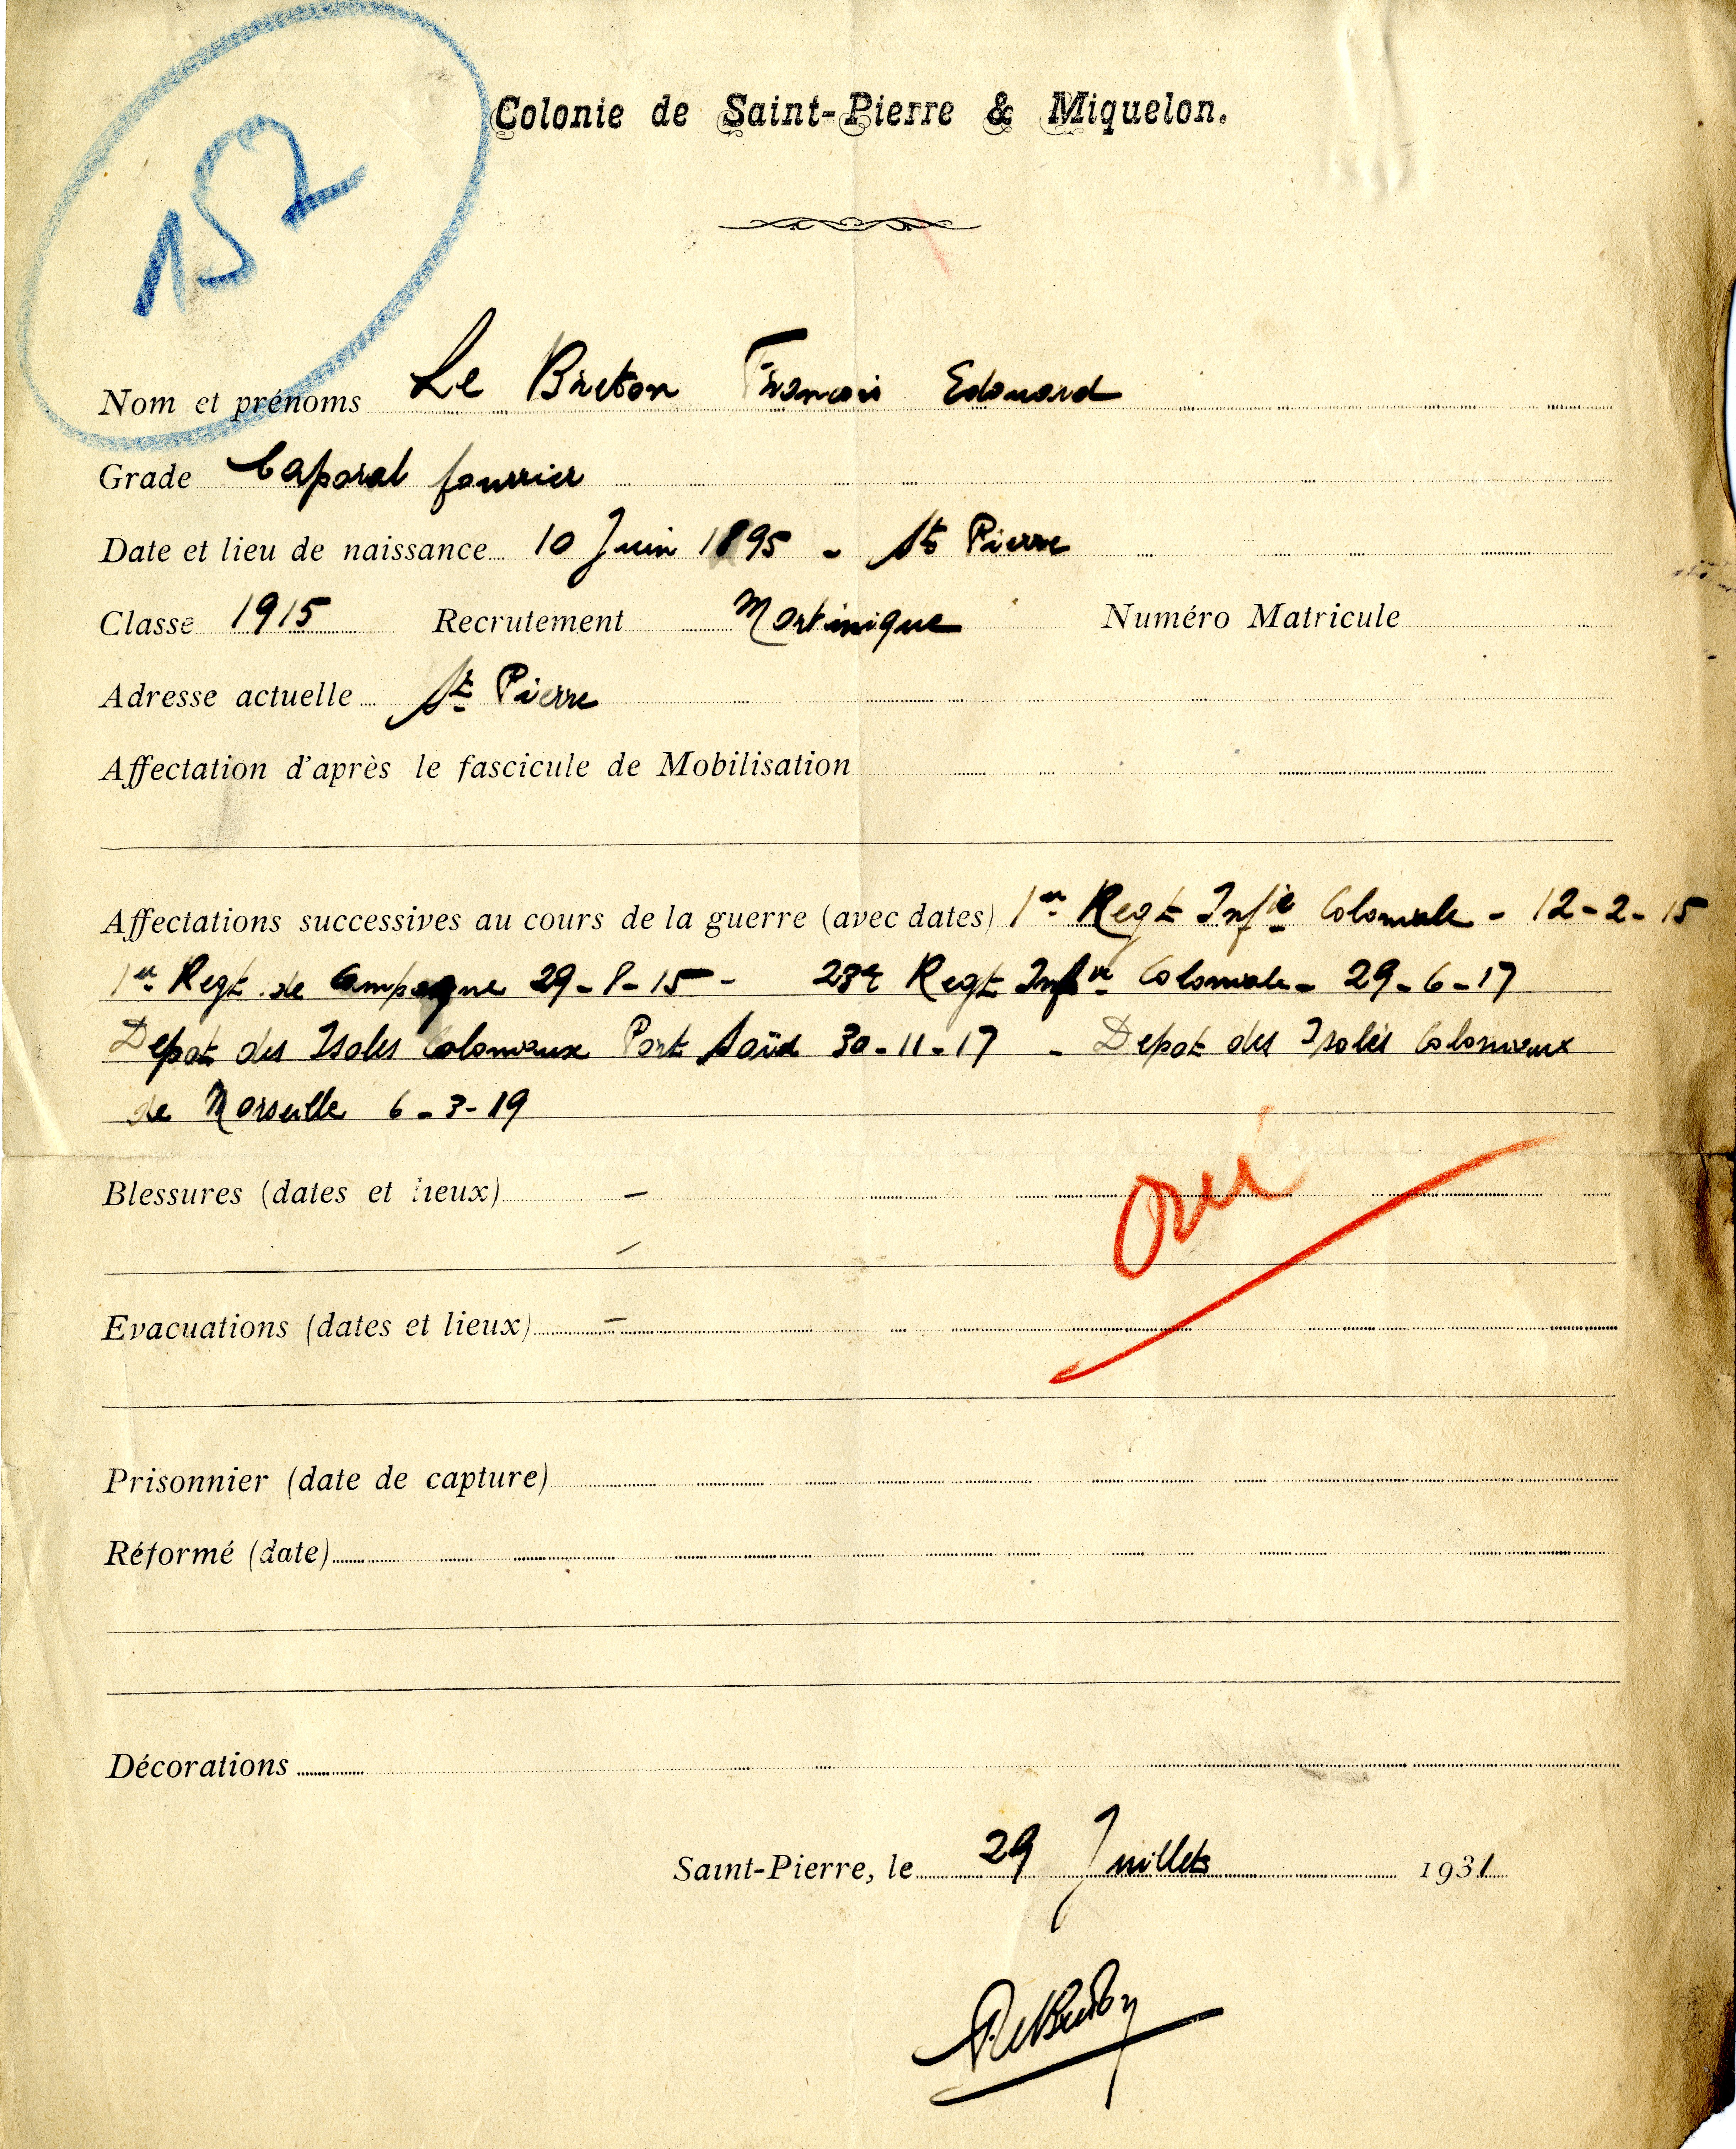 152
Colonie de Saint-Pierre & Miquelon.
Nom et prénoms Le Breton François Edouard
Grade Caporal fourrier
Date et lieu de naissance 10 Juin 1895 - St Pierre
Classe 1915 Recrutement Martinique Numéro Matricule
Adresse actuelle St Pierre
Affectation d'après le fascicule de Mobilisation
Affectations successives au cours de la guerre (avec dates) 1er Regt Infie Coloniale - 12-2-15
1er Regt de Campagne 29-8-15 - 23e Regt Infie Coloniale - 29-6-17
Depot des Isolés Coloniaux Port Saïd 30-11-17 - Depot des Isolés Coloniaux
de Marseille 6-3-19
Blessures (dates et lieux) -
oui
Evacuations (dates et lieux) -
Prisonnier (date de capture)
Réformé (date)
Décorations
Saint-Pierre, le 29 Juillet 1931